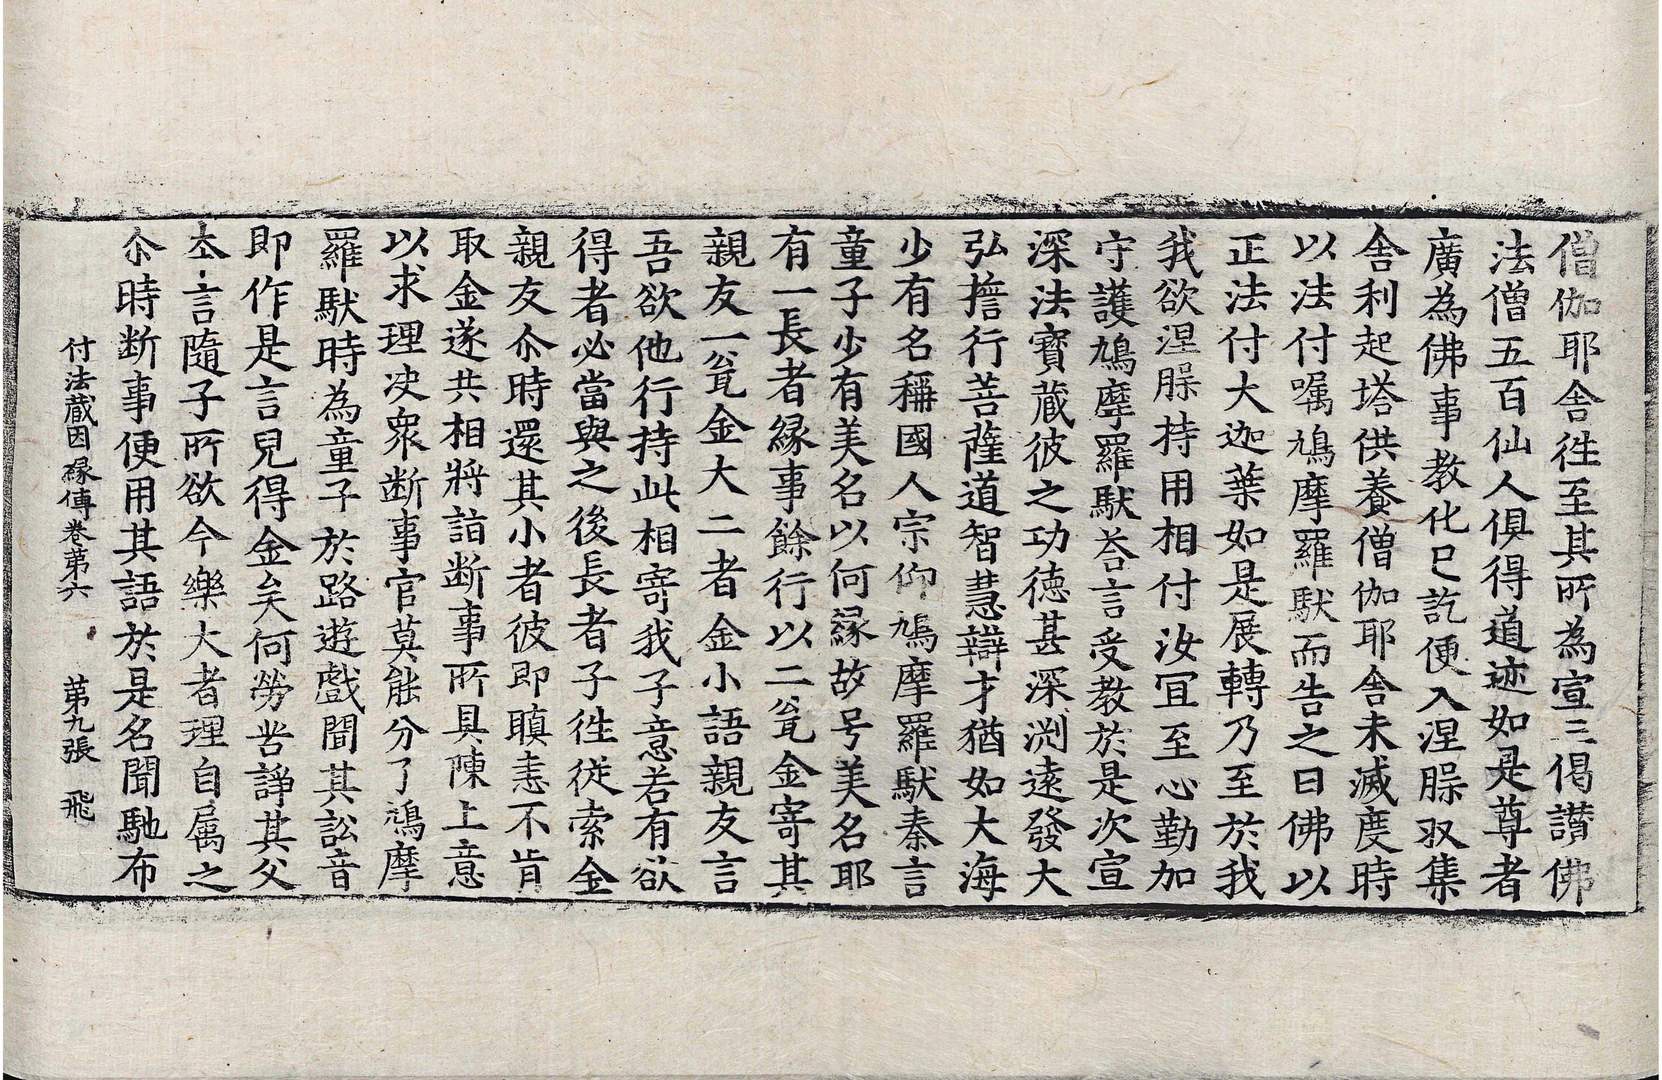 僧伽耶舎徃至其所為宣三偈讃佛
法僧五百仙人俱得道迹如是尊者
廣為佛事教化已訖便入涅槃収集
舎利起塔供養僧伽耶舎未滅度時
以法付嘱鳩摩羅馱而告之曰佛以
正法付大迦葉如是展轉乃至於我
我欲涅槃持用相付汝冝至心勤加
守護鳩摩羅馱荅言受教於是次宣
深法寳蔵彼之功徳甚深渕遠發大
弘擔行菩薩道智慧辯才猶如大海
少有名稱國人宗仰鳩摩羅馱秦言
童子少有美名以何縁故号美名耶
有一長者縁事餘行以二瓮金寄其
親友一瓮金大二者金小語親友言
吾欲他行持此相寄我子意若有欲
得者必當與之後長者子徃従索金
親友尒時還其小者彼即瞋恚不肯
取金遂共相將詣断事所具陳上意
以求理决衆断事官莫能分了鳩摩
羅馱時為童子於路遊戲聞其訟音
即作是言兒得金矣何勞呰諍其父
夲言隨子所欲今樂大者理自属之
尒時断事便用其語於是名聞馳布
付法蔵因縁傳卷苐六 苐九張 飛